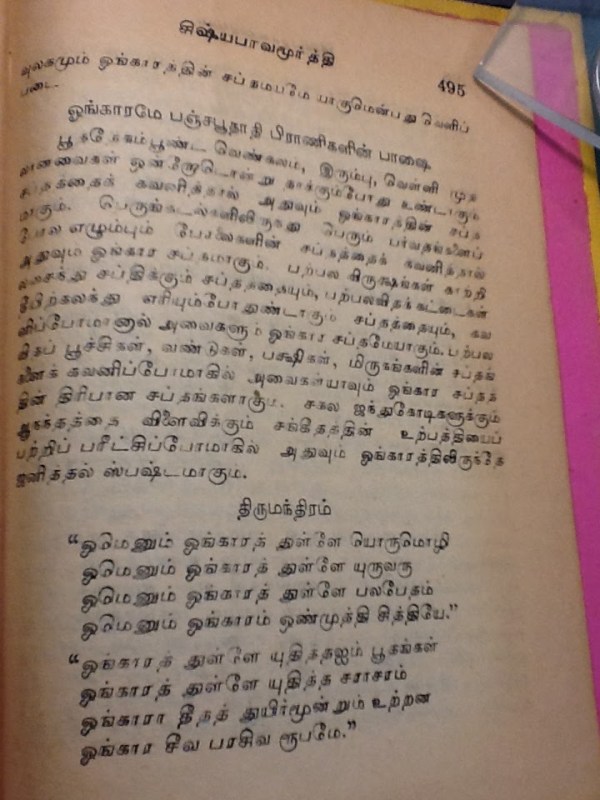 சிஷ்யபாவமூர்த்தி
495
வுலகமும் ஓங்காரத்தின் சப்தமயமே யாகுமென்பது வெளிப்
படை.
ஓங்காரமே பஞ்சபூதாதி பிராணிகளின் பாஷை
பூதகேகம்பூண்ட வெண்கலம், இரும்பு, வெள்ளி முத
லானவைகள் ஒன்றோடொன்று தாக்கும்போது உண்டாகும்
சப்தத்தைக் கவனித்தால் அதுவும் ஓங்காரத்தின் சப்த
மாகும். பெருங்கடல்களிலிருந்து பெரும் பர்வதங்களைப்
போல எழும்பும் பேரலைகளின் சப்தத்தைக் கவனித்தால்
அதுவும் ஓங்கார சப்தமாகும். பற்பல விருக்ஷங்கள் காற்றி
லசைந்து சப்திக்கும் சப்தத்தையும், பற்பலவிதக்கட்டைகள்
யேற்கலந்து எரியும்போதுண்டாகும் சப்தத்தையும், கவ
னிப்போமானால் அவைகளும் ஓங்கார சப்தமேயாகும். பற்பல
விதப் பூச்சிகள், வண்டுகள், பக்ஷிகள், மிருகங்களின் சப்தங்
களைக் கவனிப்போமாகில் அவைகள்யாவும் ஓங்கார சப்தத்
தின் திரிபான சப்தங்களாகும். சகல ஜந்துகோடிகளுக்கும்
ஆநந்தத்தை விளைவிக்கும் சங்கீதத்தின் உற்பத்தியைப்
பற்றிப் பரீட்சிப்போமாகில் அதுவும் ஓங்காரத்திலிருந்தே
ஜனித்தல் ஸ்பஷ்டமாகும்.
திருமந்திரம்
“ஓமெனும் ஓங்காரத் துள்ளே யொருமொழி
ஓமெனும் ஓங்காரத் துள்ளே யுருவரு
ஓமெனும் ஓங்காரத் துள்ளே பலபேதம்
ஓமெனும் ஓங்காரம் ஒண்முத்தி சித்தியே.”
“ஓங்காரத் துள்ளே யுதித்தஐம் பூதங்கள்
ஓங்காரத் துள்ளே யுதித்த சராசரம்
ஓங்காரா தீதத் துயிர்மூன்றும் உற்றன
ஓங்கார சீவ பரசிவ ரூபமே.”